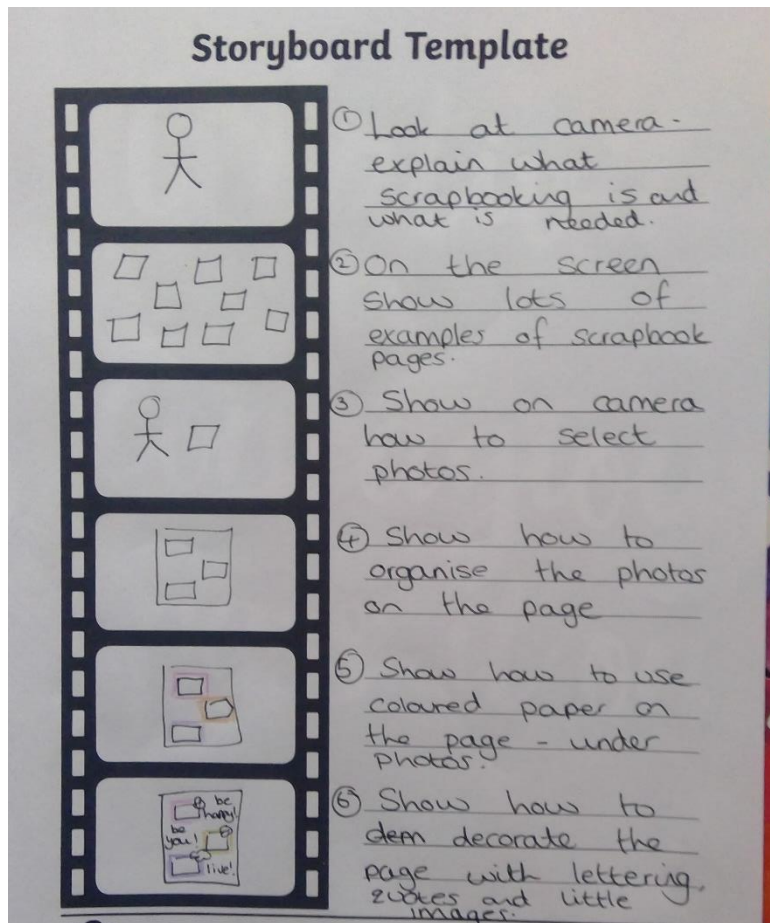 Storyboard Template
① Look at camera -
explain what
scrapbooking is and
what is needed.
② On the screen
show lots of
examples of scrapbook
pages.
③ Show on camera
how to select
photos.
④ Show how to
organise the photos
on the page
⑤ Show how to use
coloured paper on
the page - under
photos.
be
happy!
be
you!
live!
⑥ Show how to
dem decorate the
page with lettering,
quotes and little
images.